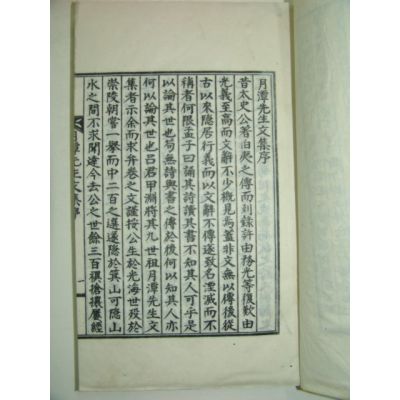 月潭先生文集序
昔太史公著伯夷之傳而列錄許由務光等復歎由
光義至高而文辭不少槪見焉蓋非文無以傳後從
古以來隱居行義而以文辭不傳遂致名湮滅而不
稱者何限孟子曰誦其詩讀其書不知其人可乎是
以論其世也苟無詩與書之傳於後何以知其人亦
何以論其世也呂君甲淵將其九世祖月潭先生文
集者示余而求弁卷之文謹按公生於光海世歿於
崇陵朝嘗一擧而中二百之選遂隱於箕山可隱山
水之間不求聞達今去公之世餘三百禩搶攘屢經
月潭先生文集序 一